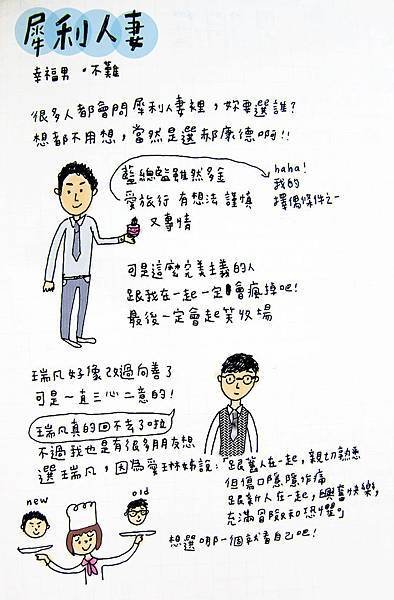 犀利人妻
幸福男・不難
很多人都會問犀利人妻裡，妳要選誰？
想都不用想，當然是選郝康德啊!!
藍總監雖然多金
愛旅行 有想法 謹慎
又專情
haha!
我的
擇偶條件之一
可是這麼完美主義的人
跟我在一起一定會瘋掉吧!
最後一定會起笑收場
瑞凡好像改過向善了
可是一直三心二意的!
瑞凡真的回不去了啦
不過我也是有很多朋友想
選瑞凡，因為愛琳姊說：「跟舊人在一起，親切熟悉
但傷口隱隱作痛
跟新人在一起，興奮快樂，
充滿冒險和恐懼。」
new
old
想選哪一個就看自己吧!